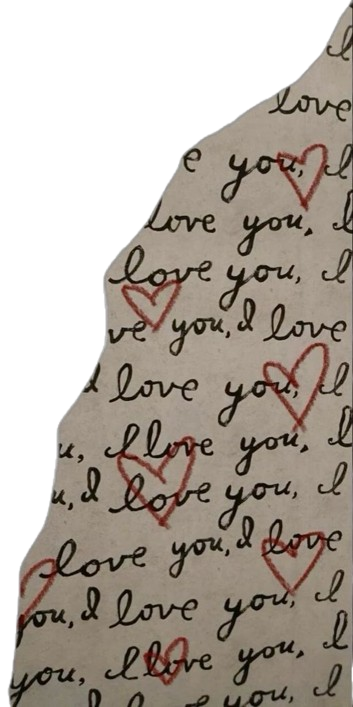 I
love
e you, I
love you, I
love you, I
ve you, I love
I love you, I
u, I love you, I
u, I love you, I
love you, I love
you, I love you, I
you, I love you, I
you, I